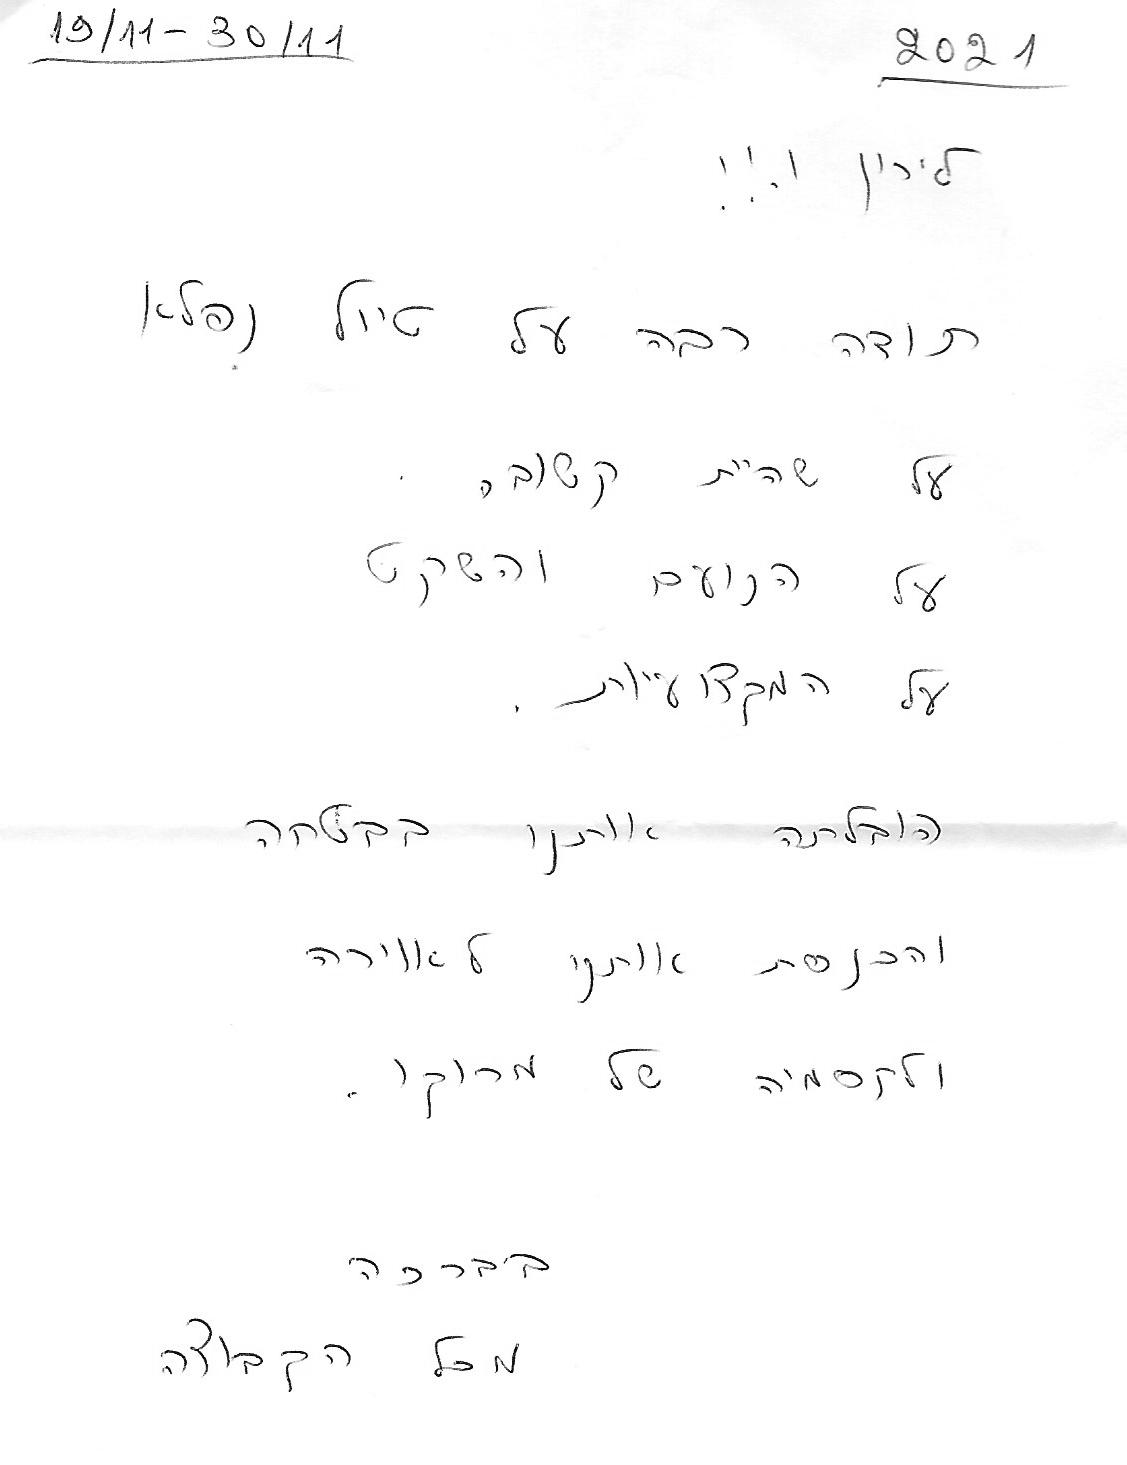 2021 19/11-30/11
לירין !!!
תודה רבה על טיול נפלא
על שהיית קשובה,
על הנועם והשקט
על המקצועיות.
הובלתה אותנו בבטחה
והכנסת אותנו לאווירה
ולקסמיה של מרוקו.
ביברכה
מכל הקבוצה